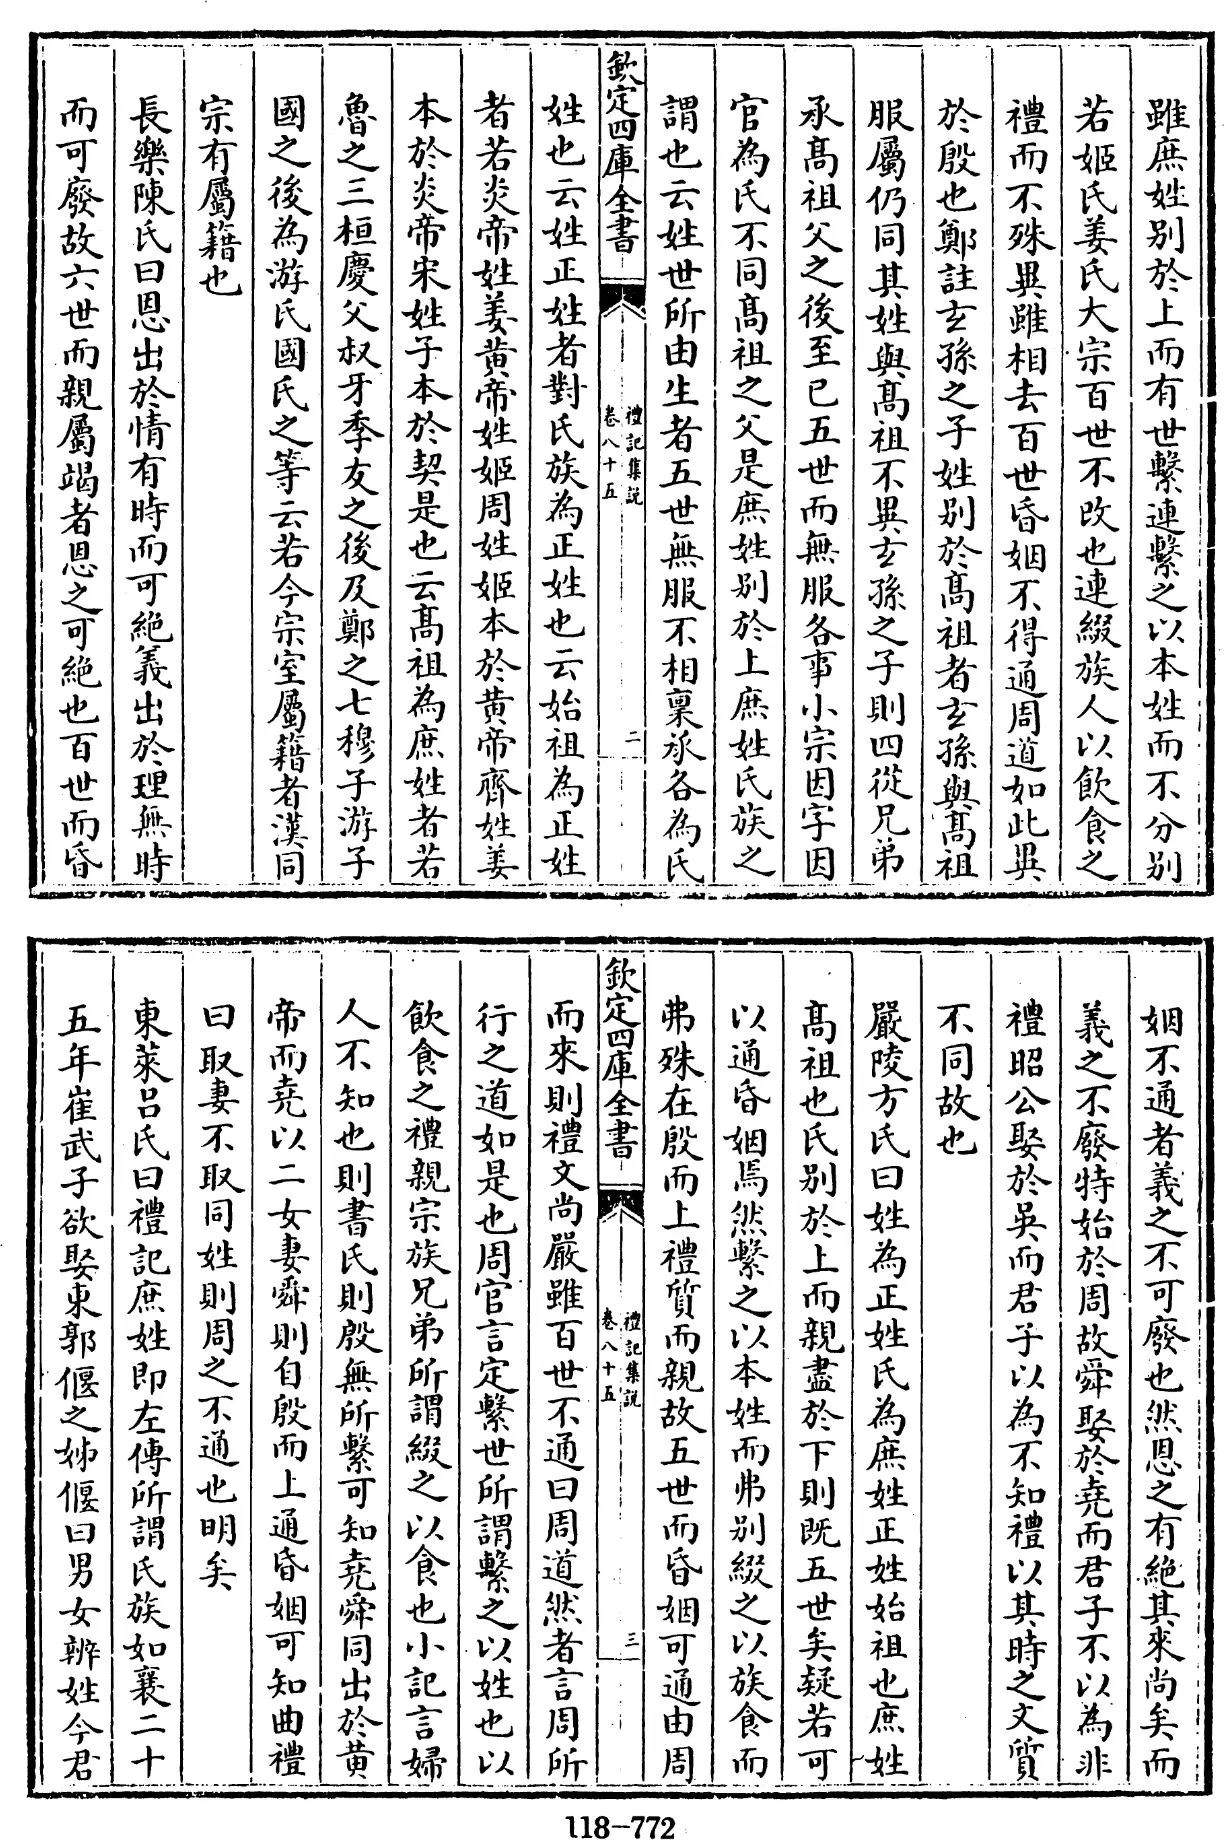 雖庶姓別於上而有世繫連繫之以本姓而不分別
若姬氏姜氏大宗百世不改也連綴族人以飲食之
禮而不殊異雖相去百世昏姻不得通周道如此異
於殷也鄭註玄孫之子姓別於高祖者玄孫與高祖
服屬仍同其姓與高祖不異玄孫之子則四從兄弟
承高祖父之後至已五世而無服各事小宗因字因
官為氏不同高祖之父是庶姓別於上庶姓氏族之
謂也云姓世所由生者五世無服不相稟承各為氏
欽定四庫全書
禮記集說
卷八十五
二
姓也云姓正姓者對氏族為正姓也云始祖為正姓
者若炎帝姓姜黄帝姓姬周姓姬本於黄帝齊姓姜
本於炎帝宋姓子本於契是也云高祖為庶姓者若
魯之三桓慶父叔牙季友之後及鄭之七穆子游子
國之後為游氏國氏之等云若今宗室屬籍者漢同
宗有屬籍也
長樂陳氏曰恩出於情有時而可絶義出於理無時
而可廢故六世而親屬竭者恩之可絶也百世而昏
姻不通者義之不可廢也然恩之有絶其來尚矣而
義之不廢特始於周故舜娶於堯而君子不以為非
禮昭公娶於吳而君子以為不知禮以其時之文質
不同故也
嚴陵方氏曰姓為正姓氏為庶姓正姓始祖也庶姓
高祖也氏别於上而親盡於下則既五世矣疑若可
以通昏姻焉然繫之以本姓而弗別綴之以族食而
弗殊在殷而上禮質而親故五世而昏姻可通由周
欽定四庫全書
禮記集說
卷八十五
三
而來則禮文尚嚴雖百世不通曰周道然者言周所
行之道如是也周官言定繫世所謂繫之以姓也以
飲食之禮親宗族兄弟所謂綴之以食也小記言婦
人不知也則書氏則殷無所繫可知堯舜同出於黄
帝而堯以二女妻舜則自殷而上通昏姻可知曲禮
曰取妻不取同姓則周之不通也明矣
東萊呂氏曰禮記庶姓即左傳所謂氏族如襄二十
五年崔武子欲娶東郭偃之姊偃曰男女辨姓今君
118-772